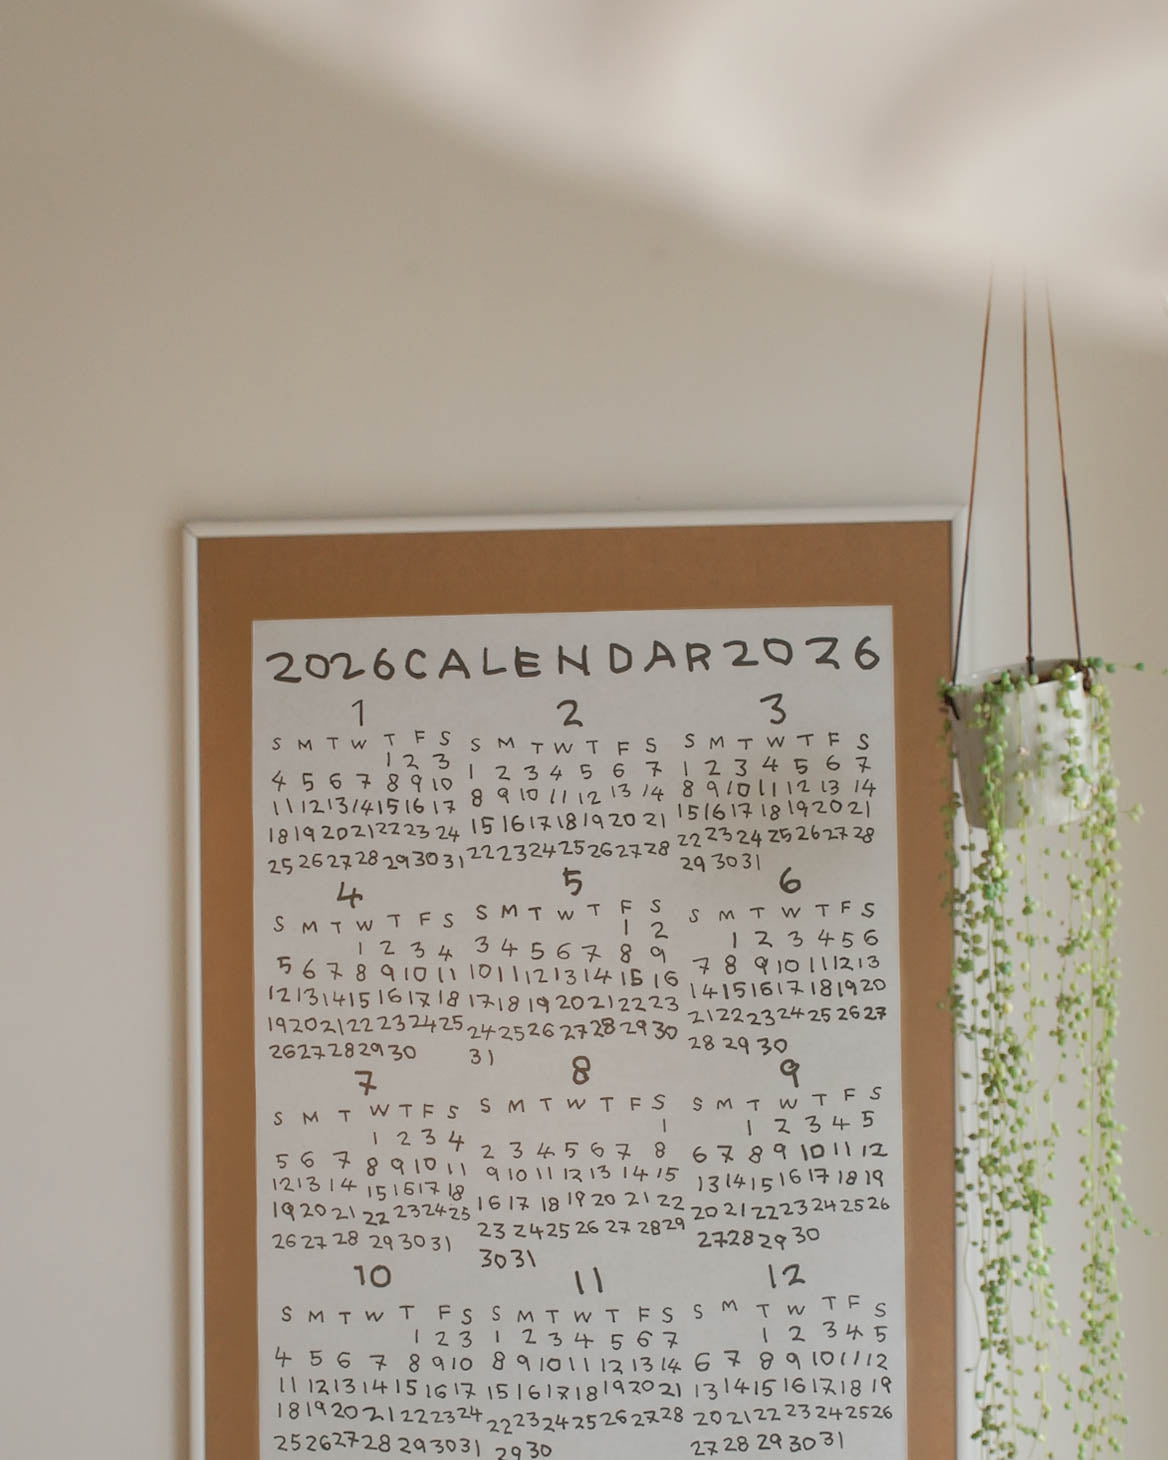 2026 CALENDAR 2026
1
S M T W T F S
1 2 3
4 5 6 7 8 9 10
11 12 13 14 15 16 17
18 19 20 21 22 23 24
25 26 27 28 29 30 31
2
S M T W T F S
1 2 3 4 5 6 7
8 9 10 11 12 13 14
15 16 17 18 19 20 21
22 23 24 25 26 27 28
3
S M T W T F S
1 2 3 4 5 6 7
8 9 10 11 12 13 14
15 16 17 18 19 20 21
22 23 24 25 26 27 28
29 30 31
4
S M T W T F S
1 2 3 4
5 6 7 8 9 10 11
12 13 14 15 16 17 18
19 20 21 22 23 24 25
26 27 28 29 30
5
S M T W T F S
1 2
3 4 5 6 7 8 9
10 11 12 13 14 15 16
17 18 19 20 21 22 23
24 25 26 27 28 29 30
31
6
S M T W T F S
1 2 3 4 5 6
7 8 9 10 11 12 13
14 15 16 17 18 19 20
21 22 23 24 25 26 27
28 29 30
7
S M T W T F S
1 2 3 4
5 6 7 8 9 10 11
12 13 14 15 16 17 18
19 20 21 22 23 24 25
26 27 28 29 30 31
8
S M T W T F S
1
2 3 4 5 6 7 8
9 10 11 12 13 14 15
16 17 18 19 20 21 22
23 24 25 26 27 28 29
30 31
9
S M T W T F S
1 2 3 4 5
6 7 8 9 10 11 12
13 14 15 16 17 18 19
20 21 22 23 24 25 26
27 28 29 30
10
S M T W T F S
1 2 3
4 5 6 7 8 9 10
11 12 13 14 15 16 17
18 19 20 21 22 23 24
25 26 27 28 29 30 31
11
S M T W T F S
1 2 3 4 5 6 7
8 9 10 11 12 13 14
15 16 17 18 19 20 21
22 23 24 25 26 27 28
29 30
12
S M T W T F S
1 2 3 4 5
6 7 8 9 10 11 12
13 14 15 16 17 18 19
20 21 22 23 24 25 26
27 28 29 30 31